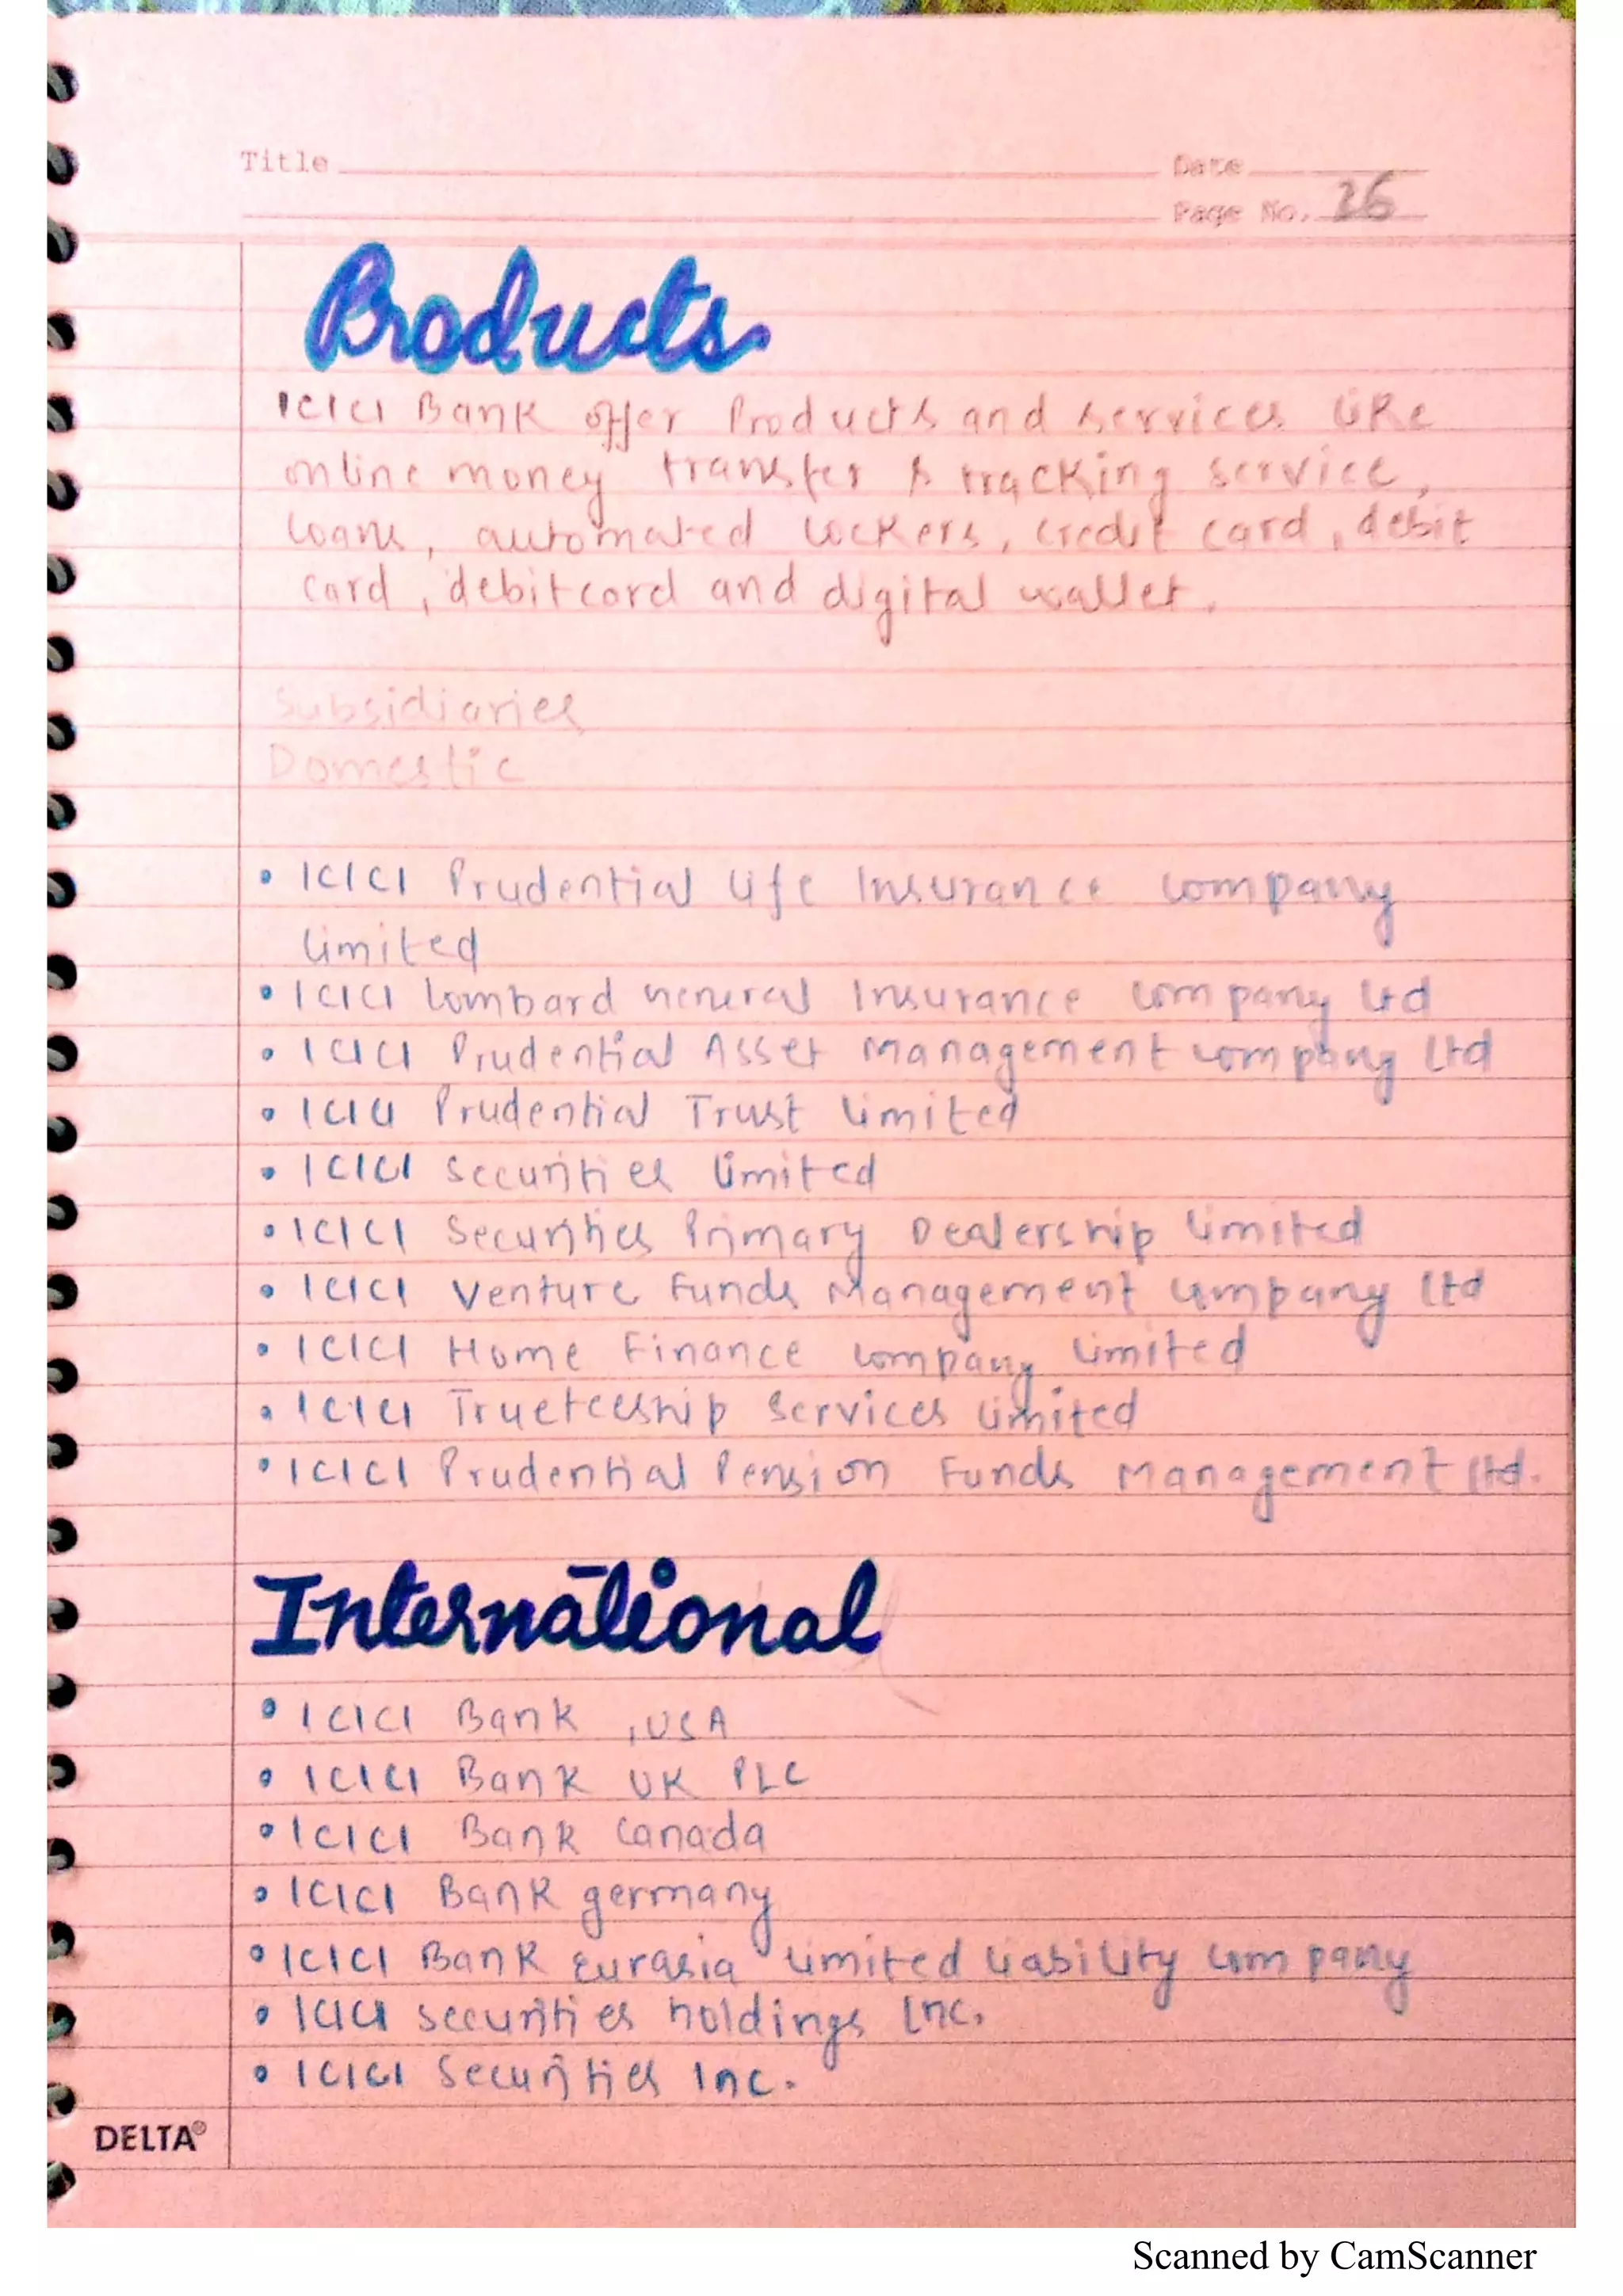 Title
Date
Page No. 36
Products
ICICI Bank offer Products and services like
online money transfer & tracking service,
loans, automated lockers, credit card, debit
card, debitcard and digital wallet.
Subsidiaries
Domestic
• ICICI Prudential Life Insurance Company
Limited
• ICICI Lombard General Insurance Company Ltd
• ICICI Prudential Asset Management Company Ltd
• ICICI Prudential Trust Limited
• ICICI Securities Limited
• ICICI Securities Primary Dealership Limited
• ICICI Venture Funds Management Company Ltd
• ICICI Home Finance Company Limited
• ICICI Trueteeship Services Limited
• ICICI Prudential Pension Funds Management Ltd.
International
• ICICI Bank , USA
• ICICI Bank UK PLC
• ICICI Bank Canada
• ICICI Bank germany
• ICICI Bank Eurasia Limited Liability Company
• ICICI securities holdings Inc.
• ICICI Securities Inc.
DELTA®
Scanned by CamScanner